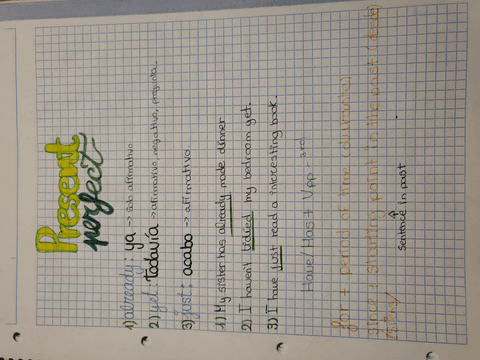 Present
perfect
1) already: ya -> solo afirmativo
2) yet: todavía -> afirmativo, negativo, pregunta.
3) just: acabo -> afirmativo.
1) My sister has already made dinner
2) I haven't tidied my bedroom yet.
3) I have just read a interesting book.
Have/Has + Vpp - 3rd
for + period of time (durante)
since + starting point in the past (desde)
Sentence in past